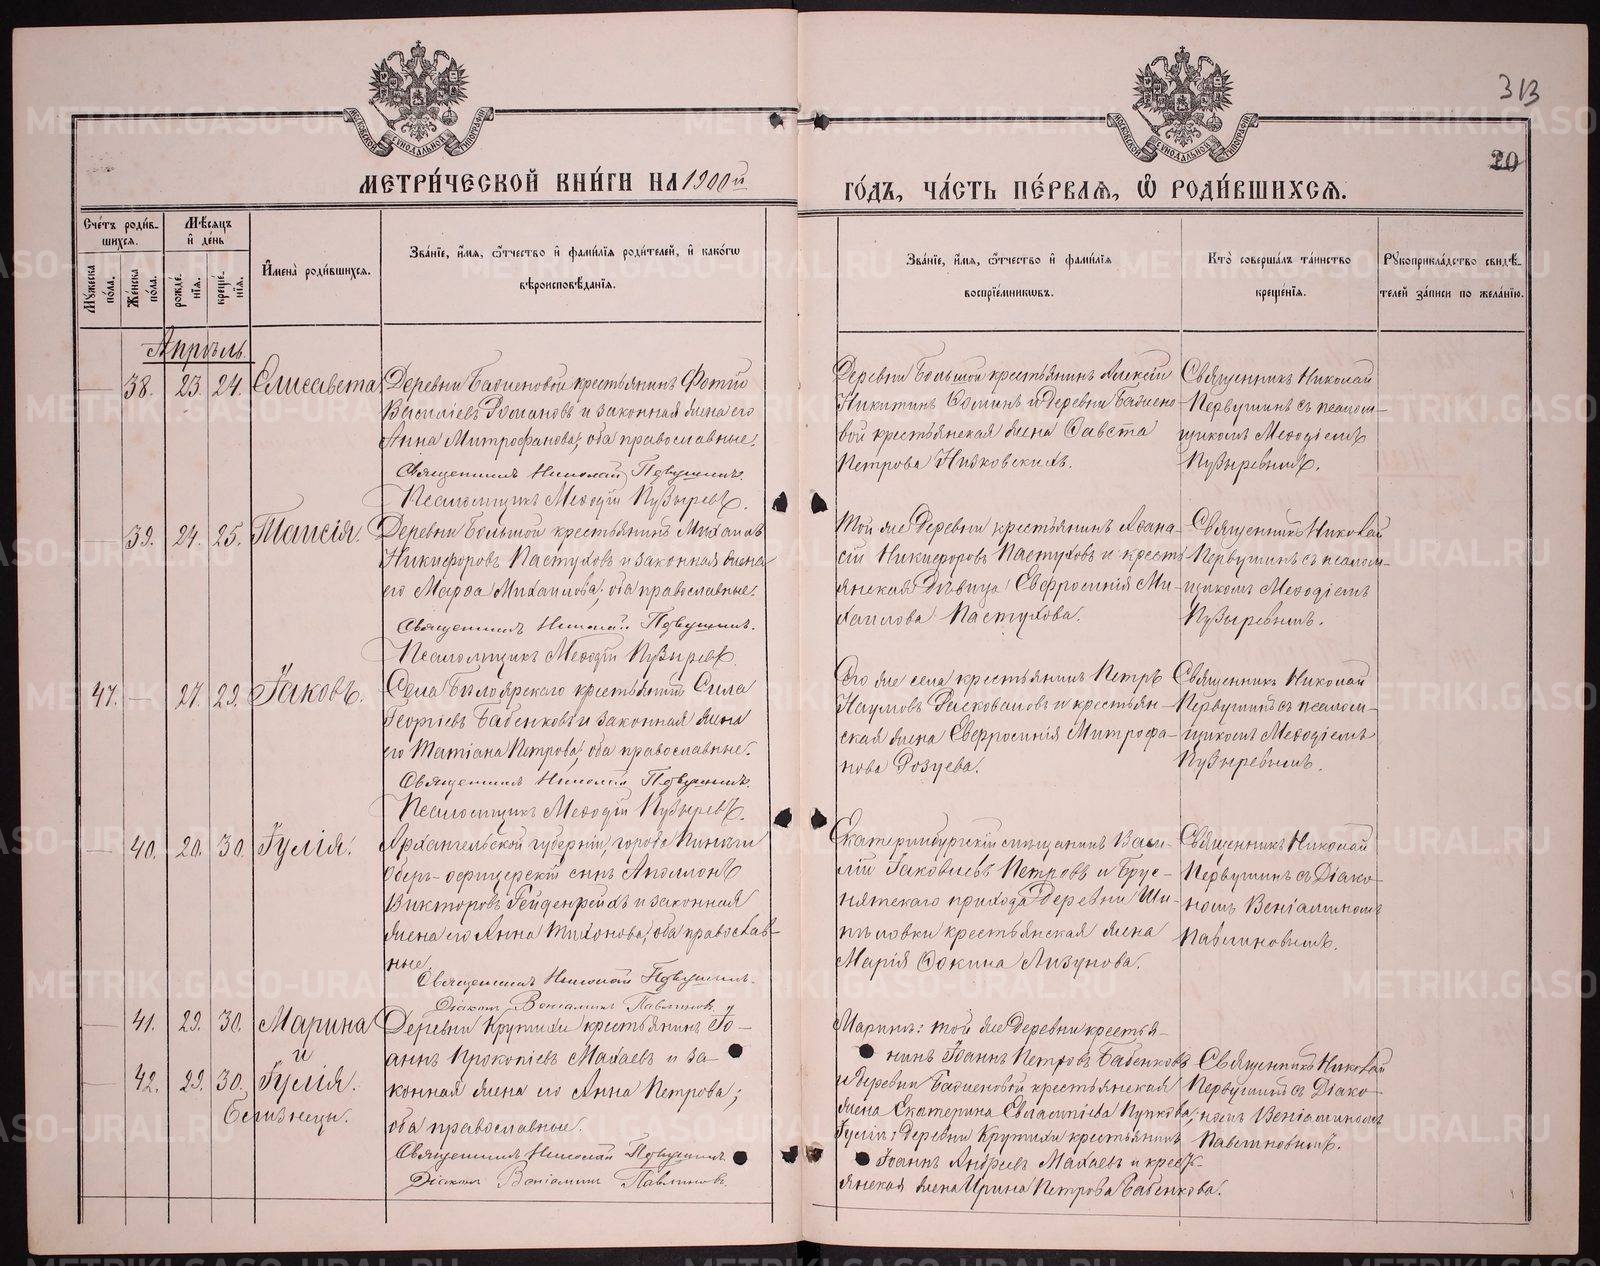 313
20
МОСКОВСКОЙ СѴНОДАЛЬНОЙ ТИПОГРАФІИ
МОСКОВСКОЙ СѴНОДАЛЬНОЙ ТИПОГРАФІИ
МЕТРИ́ЧЕСКОЙ КНИ́ГИ НА 1900й
ГО́ДЪ, ЧА́СТЬ ПЕ́РВАЯ, Ѡ҆ РОДИ́ВШИХСЯ.
Сче́тъ роди́в-
шихся.
Мѣ́сяцъ
и де́нь
Мꙋ́жеска
по́ла.
Же́нска
по́ла.
рожде́-
нія.
креще́-
нія.
И҆мена̀ роди́вшихся.
Зва́ніе, и҆́мя, ѻ҆́тчество и҆ фами́лія роди́телей, и҆ како́гѡ
вѣроисповѣ́данія.
Зва́ніе, и҆́мя, ѻ҆́тчество и҆ фами́лія
воспріе́мникѡвъ.
Кто̀ соверша́лъ та́инство
креще́нія.
Рꙋкоприкла́дство свидѣ́-
телей за́писи по жела́нію.
Апрѣль.
38. 23. 24. Елисавета
Деревни Баженовой крестьянинъ Фотій
Василіевъ Романовъ и законная жена его
Анна Митрофанова; оба православные.
Священникъ Николай Первушинъ.
Псаломщикъ Меѳодій Пузыревъ.
Деревни Большой крестьянинъ Алексій
Никитинъ и деревни Бажено-
вой крестьянская жена Савста
Петрова Низковскихъ.
Священникъ Николай
Первушинъ съ псалом-
щикомъ Меѳодіемъ
Пузыревымъ.
39. 24. 25. Таисія.
Деревни Большой крестьянинъ Михаилъ
Никифоровъ Пастуховъ и законная жена
его Марѳа Михаилова; оба православные.
Священникъ Николай Первушинъ.
Псаломщикъ Меѳодій Пузыревъ.
Той же деревни крестьянинъ Аѳана-
сій Никифоровъ Пастуховъ и кресть-
янская дѣвица Евфросинія Ми-
хаилова Пастухова.
Священникъ Николай
Первушинъ съ псалом-
щикомъ Меѳодіемъ
Пузыревымъ.
47. 27. 29. Іаковъ.
Села Бѣлоярскаго крестьянинъ Сила
Георгіевъ Бабенковъ и законная жена
его Татіана Петрова; оба православные.
Священникъ Николай Первушинъ.
Псаломщикъ Меѳодій Пузыревъ.
Сего же села крестьянинъ Петръ
Наумовъ и крестьян-
ская жена Евфросинія Митрофа-
нова Розуева.
Священникъ Николай
Первушинъ съ псалом-
щикомъ Меѳодіемъ
Пузыревымъ.
40. 20. 30. Іулія.
Архангельской губерніи, города Пинеги
Оберъ-офицерскій сынъ Аполлонъ
Викторовъ Гейденрейхъ и законная
жена его Анна Тихонова; оба православ-
ные.
Священникъ Николай Первушинъ.
Діаконъ Веніаминъ Павлиновъ.
Екатеринбургскій мѣщанинъ Васи-
лій Іаковлевъ Петровъ и Брус-
нятскаго прихода деревни Ши-
пѣловки крестьянская жена
Марія Ѳокина Лизунова.
Священникъ Николай
Первушинъ съ Діако-
номъ Веніаминомъ
Павлиновымъ.
41. 29. 30. Марина
и
42. 29. 30. Іулія.
близнецы.
Деревни Крутихи крестьянинъ Іо-
аннъ Прокопіевъ Махаевъ и за-
конная жена его Анна Петрова;
оба православные.
Священникъ Николай Первушинъ.
Діаконъ Веніаминъ Павлиновъ.
Марины: той же деревни крестья-
нинъ Іоаннъ Петровъ Бабенковъ
и деревни Баженовой крестьянская
жена Екатерина Евлампіева Пупкова;
Іуліи: деревни Крутихи крестьянинъ
Іоаннъ Андреевъ Махаевъ и крест-
янская жена Ирина Петрова Бабенкова.
Священникъ Николай
Первушинъ съ Діако-
номъ Веніаминомъ
Павлиновымъ.
METRIKI.GASO-URAL.RU